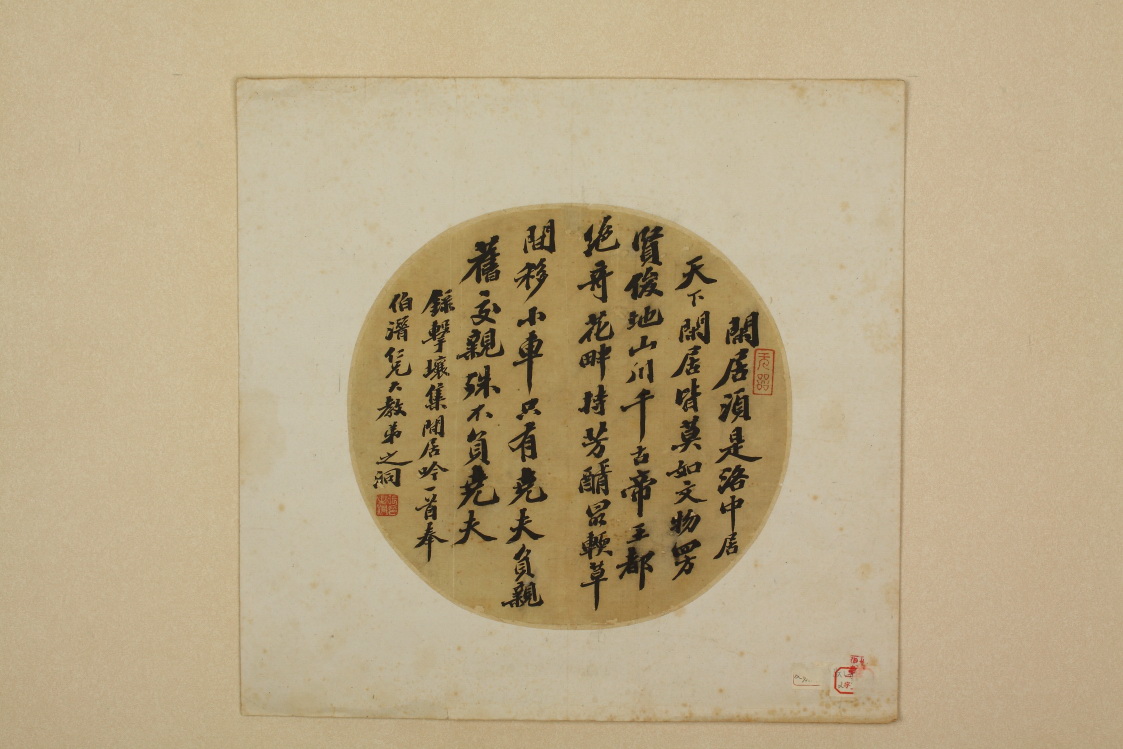 閑居須是洛中居
天下閑居皆莫如文物四方
賢俊地山川千古帝王都
絕奇花畔持芳醑最輭草
間移小車只有堯夫負親
舊交親殊不負堯夫
錄擊壤集閑居吟一首奉
伯潛仁兄大教弟之洞